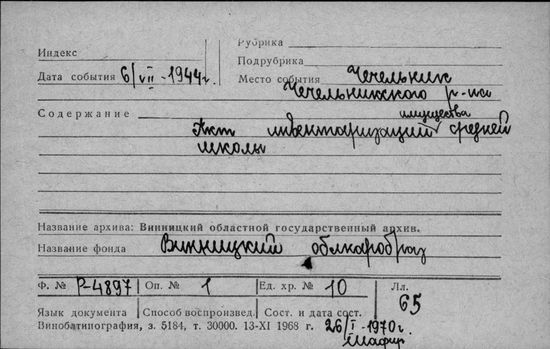 Рубрика
Индекс
Подрубрика
Дата события 6/VII-1944г. Место события Чечельник
Чечельникского р-на
Содержание имущества
Акт инвентаризации средней
школы
Название архива: Винницкий областной государственный архив.
Название фонда Винницкий облнаробраз
Ф. № Р-4897 Оп. № 1 Ед. хр. № 10 Лл. 65
Язык документа Способ воспроизвед. Сост. и дата сост.
Винобатипография, з. 5184, т. 30000. 13-XI 1968 г. 26/I-1970г.